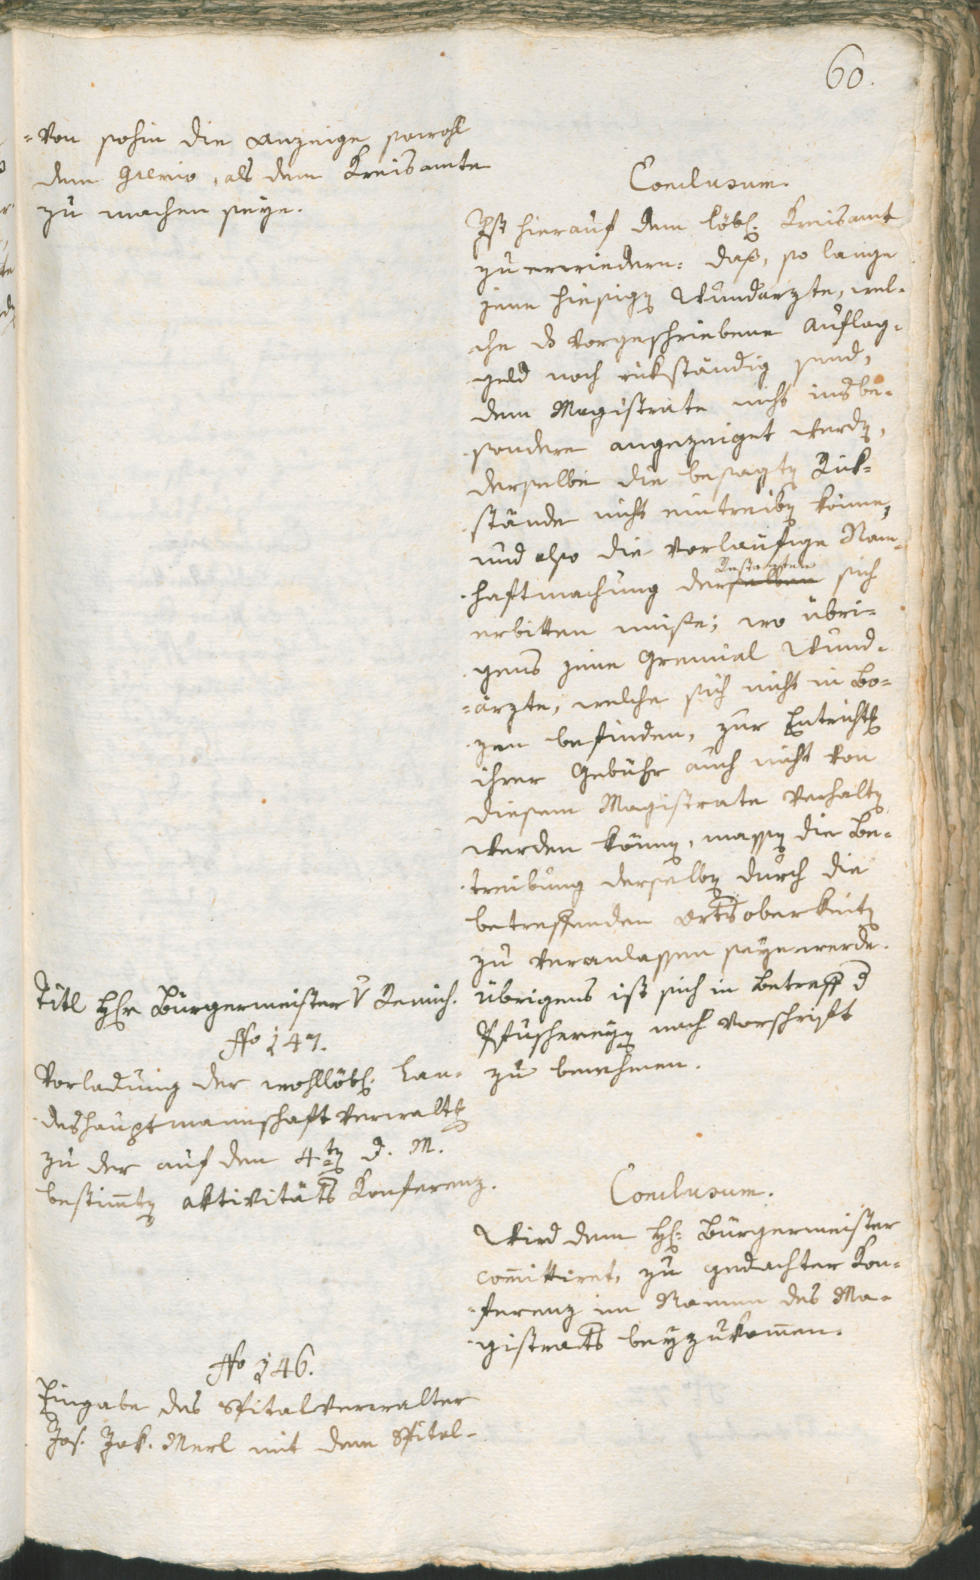 60.
-von sohin die anzeige sowohl
dem Gremio, als dem Kreisamte
zu machen seye.
Conclusum.
Ist hierauf dem löbl: Kreisamt
zu erwiedern: daß, so lange
jene hiesigen Wundarzte, wel-
che d vorgeschriebene Auflag-
geld noch rükständig sind,
dem Magistrate nicht insbe-
sondere angezeiget werden,
derselbe die besagten Rük-
stände nicht eintreiben könne,
und also die vorläufige Nam-
haftmachung derselben Restanten sich
erbitten müsse; wo übri-
gens jene Gremial Wund-
-ärzte, welche sich nicht in Bo-
zen befinden, zur Entrichtung
ihrer Gebühr auch nicht von
diesem Magistrate verhalten
werden können, massen die Be-
treibung derselben durch die
betreffenden Ortsoberkeiten
zu veranlassen seyn werde.
übrigens ist sich in Betreff der
Pfuschereyen nach Vorschrift
zu benehmen.
Titl Herr Bürgermeister v Remich.
No 147.
Vorladung der wohllöbl: Lan-
deshauptmannschaft Verwaltung
zu der auf den 4ten d. M.
bestimten aktivitäts Konferenz.
Conclusum.
Wird dem H: Bürgermeister
comittiret, zu gedachter Kon-
ferenz im Namen des Ma-
gistrats beyzukomen.
No 146.
Eingabe des Spitalverwalter
Jos. Jak. Merl mit dem Spital-